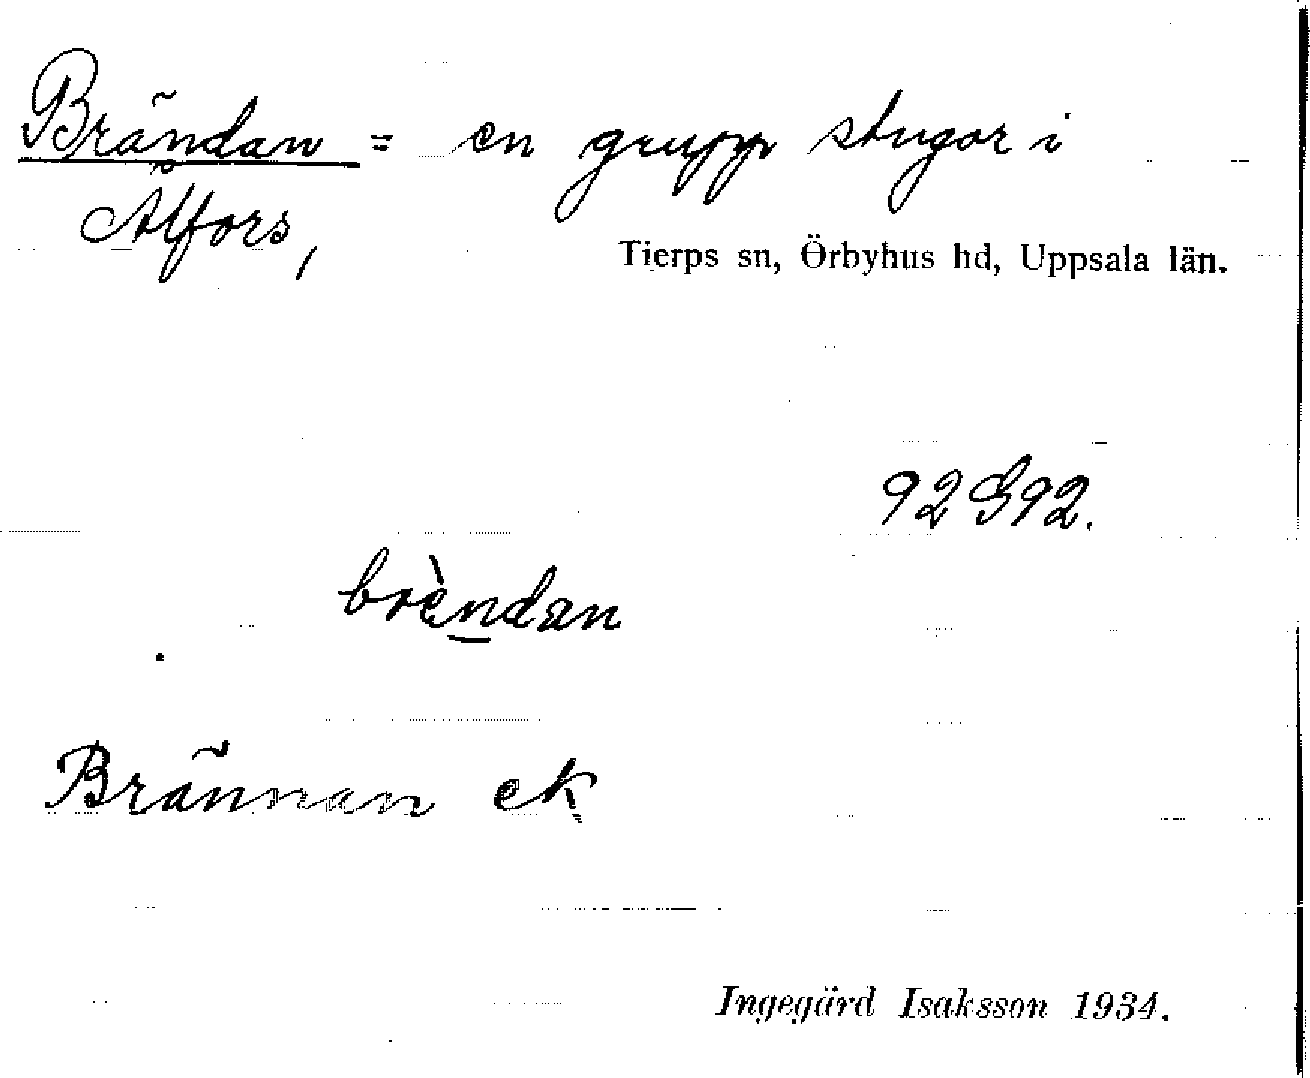 Brändan = en grupp stugor i
Älfors,
Tierps sn, Örbyhus hd, Uppsala län.
92 G92.
brèndan
Brännan ek
Ingegärd Isaksson 1934.